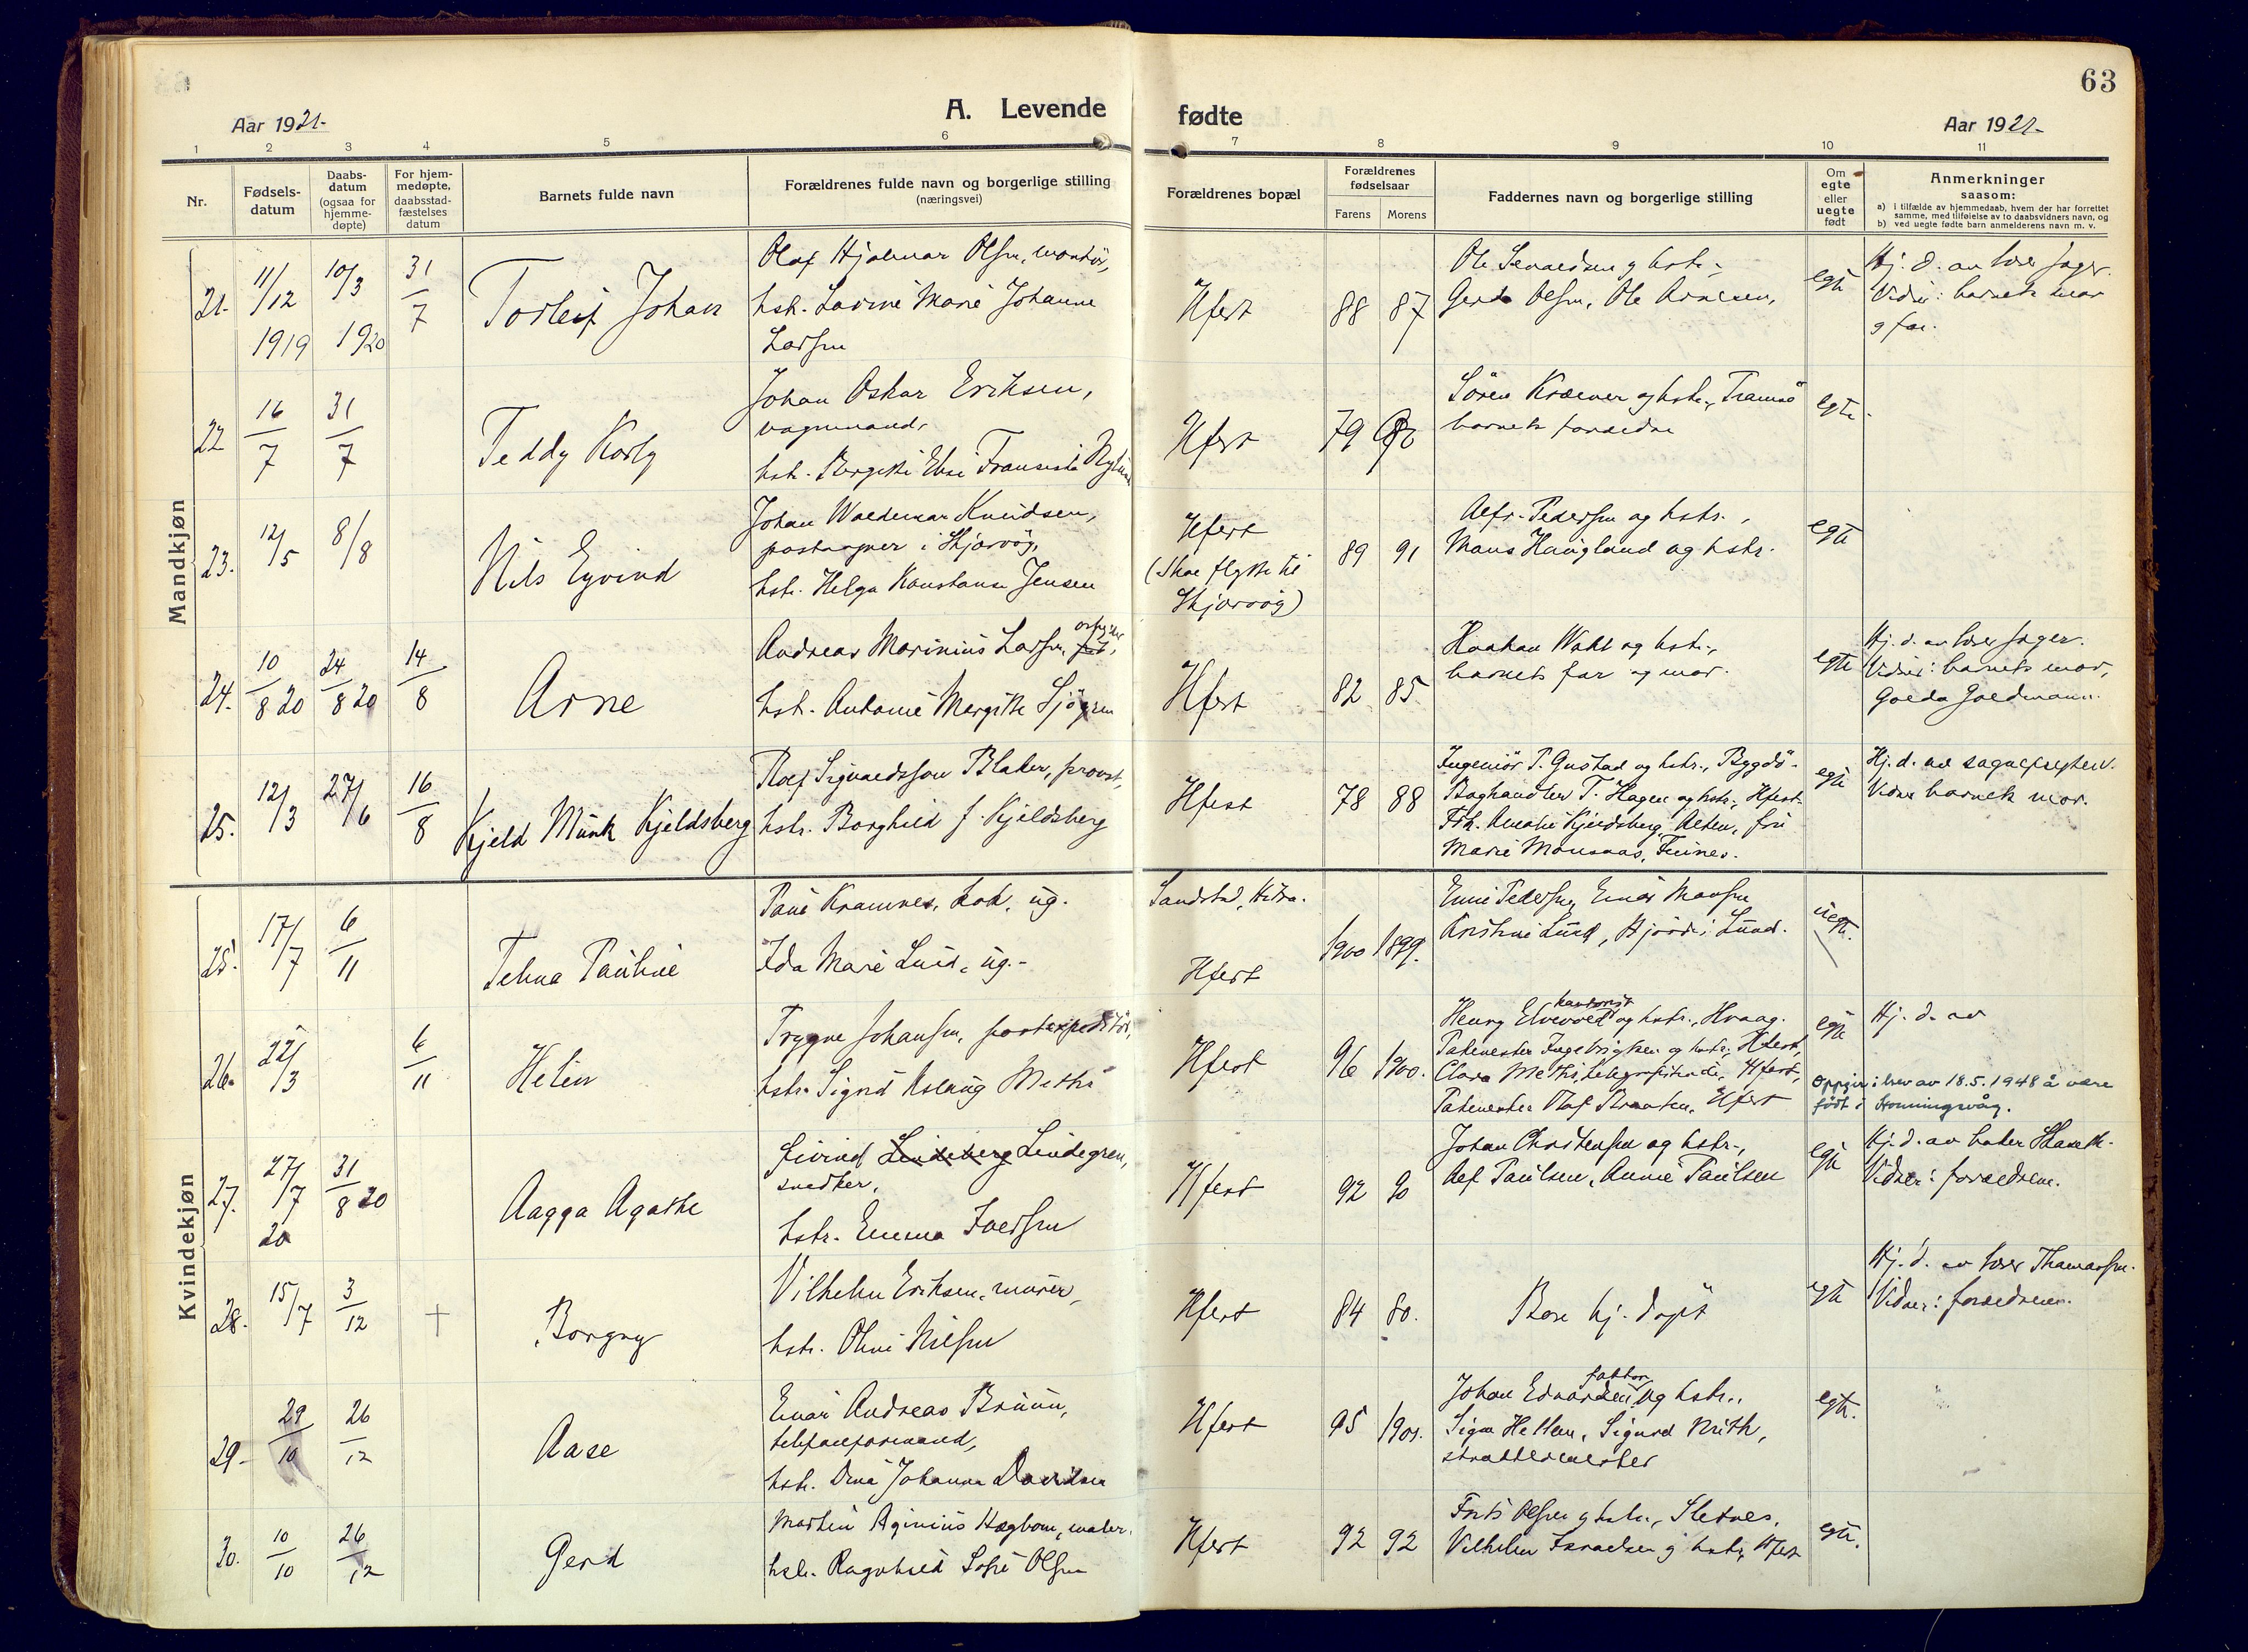 63
A. Levende fødte
Aar 1921.
Aar 1921.
1 2 3 4 5 6 7 8 9 10 11
Nr.
Fødsels-
datum
Daabs-
datum
(ogsaa for
hjemme-
døpte)
For hjem-
medøpte,
daabsstad-
fæstelses
datum
Barnets fulde navn
Forældrenes fulde navn og borgerlige stilling
(næringsvei)
Forældrenes bopæl
Forældrenes
fødselsaar
Farens Morens
Faddernes navn og borgerlige stilling
Om
egte
eller
uegte
født
Anmerkninger
saasom:
a) i tilfælde av hjemmedaab, hvem der har forrettet
samme, med tilføielse av to daabsvidners navn, og
b) ved uegte fødte barn anmelderens navn m. v.
Mandkjøn
21. 11/12 1919 10/3 1920 31/7 Torleif Johan
Olaf Hjalmar Olsen, montør,
hstr. Lovine Marie Johanne
Larsen
Hfest 88 87
Gerda Olsen, Ole Arnesen,
egte
Hj. d. av lærer Jager.
Vidner: barnets mor
og far.
22 16/7 31/7 Teddy Karly
Johan Oskar Eriksen,
vognmand,
Hfest 79
Søren Kræmer og hstr., Tromsø
barnets forældre
egte.
23. 12/5 8/8 Nils Eyvind
Johan Waldemar Knudsen,
postaapner i Skjervøy,
hstr. Helga Konstanse Jensen
Hfest
(Skal flytte til
Skjervøy)
89 91
Alfr. Pedersen og hstr.,
Mons Haugland og hstr.
egte
24. 10/8 20 24/8 20 14/8 Arne
Andreas Marinius Larsen,
hstr. Antonie Margitte Sjøgren
Hfest 82 85
Haakon Wahl og hstr.,
barnets far og mor.
egte
Hj. d. av lærer Jager.
Vidner: barnets mor,
Golda Goldmann.
25. 12/3 27/6 16/8 Kjeld Munk Kjeldsberg
Rolf Sigvaldsson Blaker, provst,
hstr. Borghild f. Kjeldsberg
Hfest 78 88
Ingeniør P. Gustad og hstr., Bygdø.
Boghandler T. Hagen og hstr., Hfest.
Frk. Amalie Kjeldsberg, Alten, fru
Marie Monsaas, Finnes.
egte
Hj. d. av sognepresten.
Vidne barnets mor.
Kvindekjøn
25. 17/7 6/11 Telma Pauline
Paul Kramnes, kok, ug.
Ida Marie Lund, ug.
Sandstad, Hitra.
Hfest
1900 1899.
Kristine Lund, Hjørdis Lund.
uegte.
26. 22/3 6/11 Helen
Trygve Johansen, postexpeditør,
hstr. Sigrid Aslaug Methi
Hfest 96 1900.
Henry Elvevold kantorist og hstr., Hvaag.
Pakmester Ingebrigtsen og hstr., Hfest,
Clara Methi, telegrafistinde, Hfest,
Pakmester Olaf Braaten, Hfest
egte
Hj. d. av
Oppgir i brev av 18.5.1948 å være
født i Honningsvåg.
27. 27/7 20 31/8 20 Aagga Agathe
Eivind Lindeberg Lindegren,
snedker,
hstr. Emma Iversen
Hfest 92 90
Johan Christensen og hstr.,
Alf Paulsen, Annie Paulsen
egte
Vidner: forældrene.
28. 15/7 3/12 † Borgny
Vilhelm Eriksen, murer,
hstr. Oline Nilsen
Hfest 84 80.
Bare hj. døpt
egte
Hj. d. av lærer Thomassen.
Vidner: forældrene.
29. 29/10 26/12 Aase
Einar Andreas Bruun,
telefonformand,
hstr. Dina Johanna Davidsen
Hfest 95 1901.
Johan Edvardsen, faktor og hstr.,
Signe Hellem, Sigurd Krith,
skräddermester
egte.
30. 10/10 26/12 Gerd
Martin Aginius Hægbom, maler,
hstr. Ragnhild Sofie Olsen
Hfest 92 92
Frits Olsen og hstr., Sletnes,
Vilhelm Israelsen og hstr., Hfest
egte.